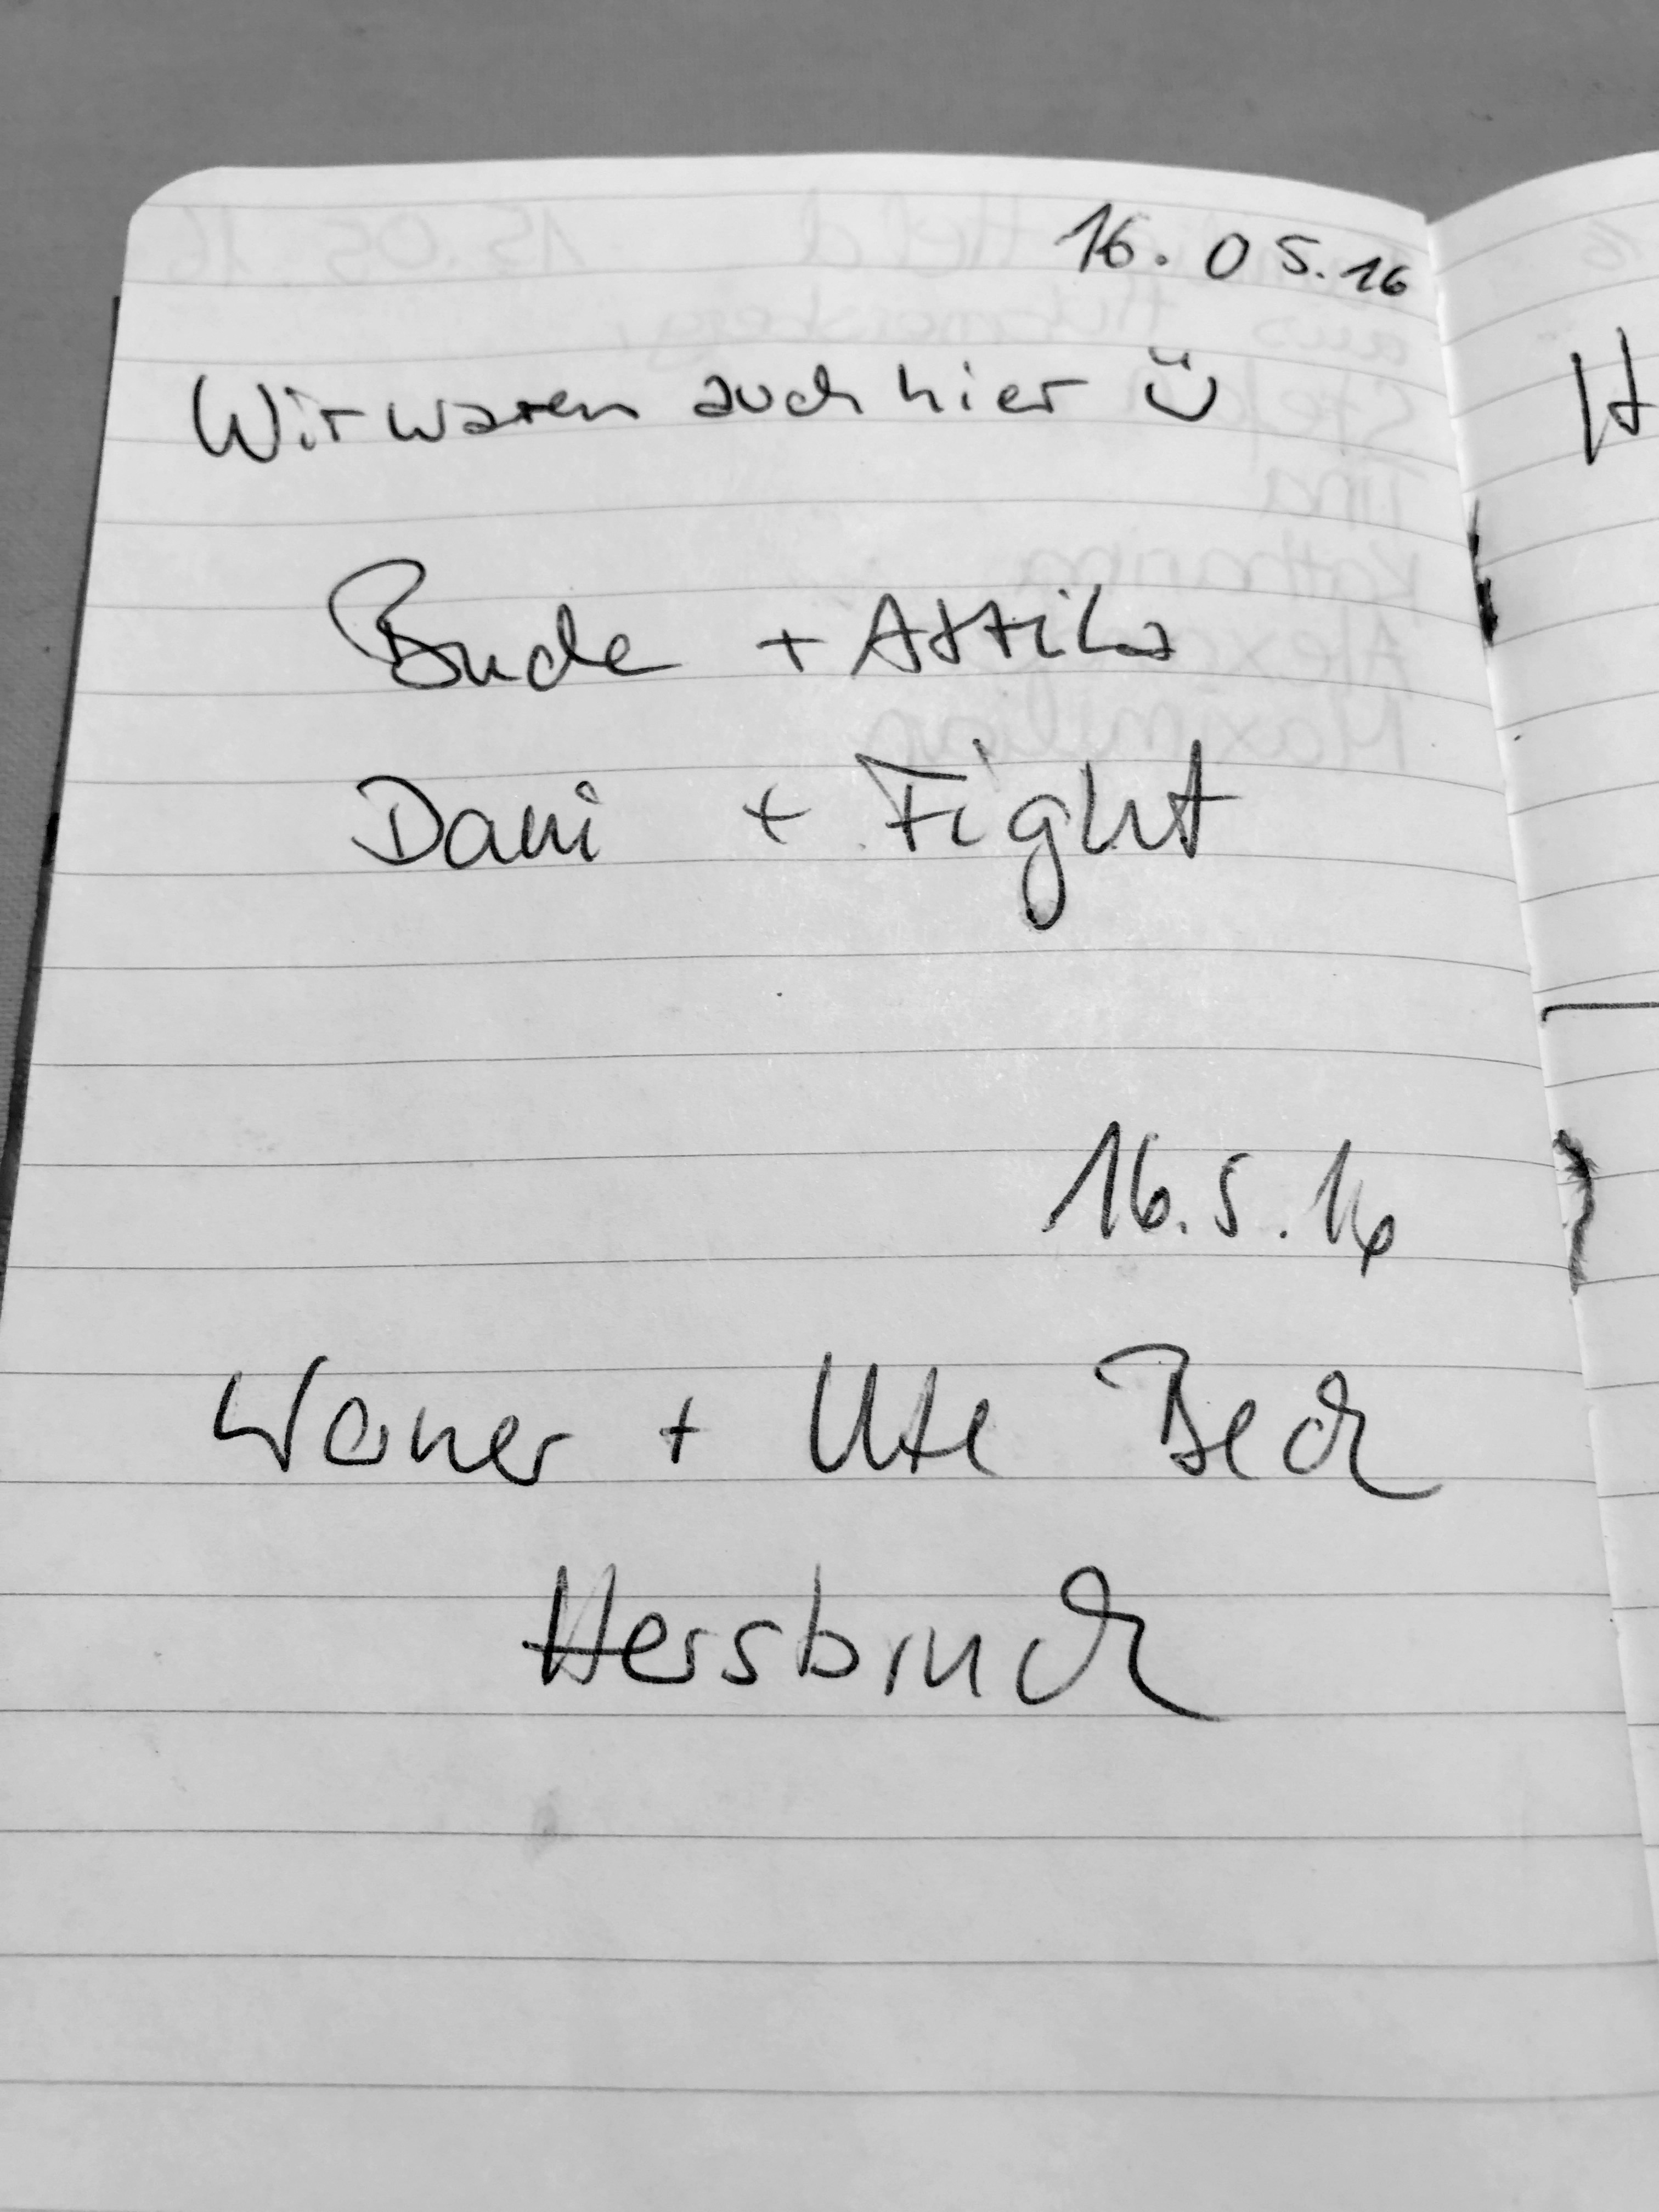 16.05.16
Wir waren auch hier ü
Bude + Attila
Dani + Fight
16.5.16
Werner + Ute Beck
Hersbruck
H